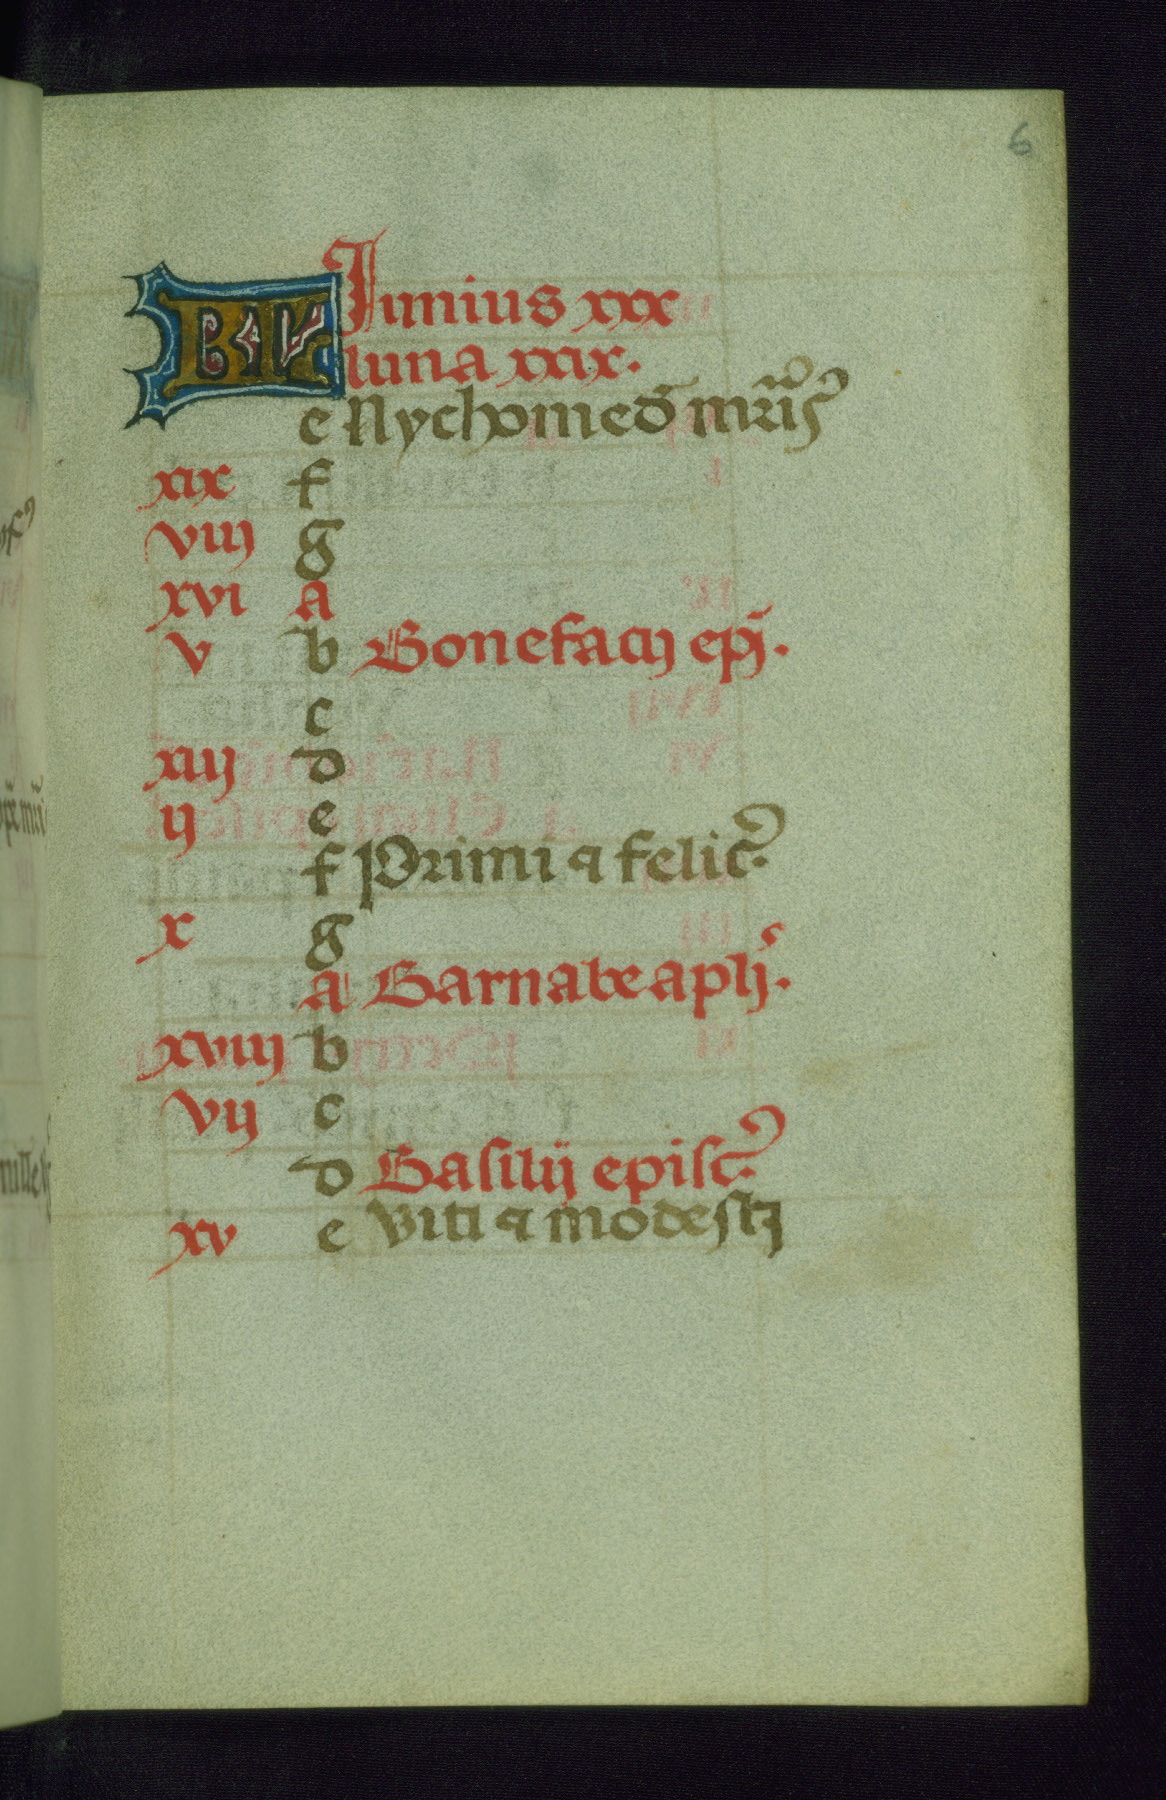 6
KL Junius xxx
luna xxix.
e Nychomed mris
xix f
viij g
xvi a
v b Bonefacij epi.
c
xiij d
ij e
f Primi & felic.
x g
a Barnabe apli.
xviij b
vij c
d Basilij episc.
xv e Viti & modesti